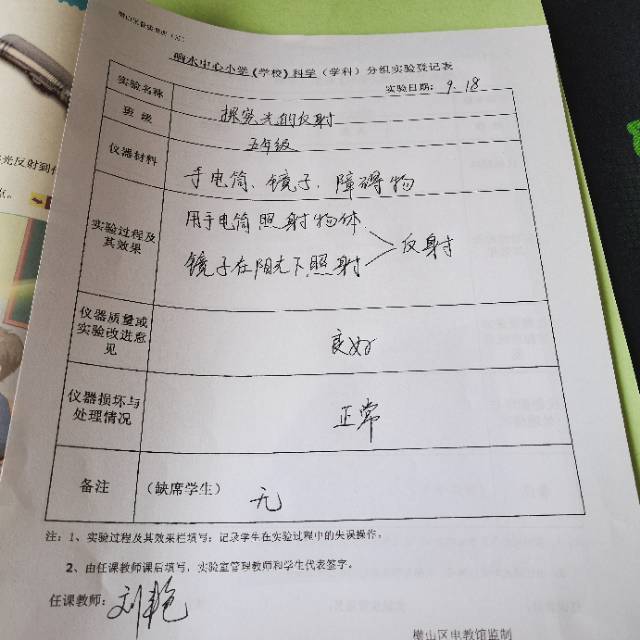 响水中心小学（学校）科学（学科）分组实验登记表
实验日期：9.18
实验名称 探究光的反射
班 级 五年级
仪器材料 手电筒、镜子、障碍物
实验过程及其效果
用手电筒照射物体
镜子在阳光下照射
反射
仪器质量或实验改进意见 良好
仪器损坏与处理情况 正常
备注 （缺席学生） 无
注：1、实验过程及其效果栏填写：记录学生在实验过程中的失误操作。
2、由任课教师课后填写，实验室管理教师和学生代表签字。
任课教师：刘艳
横山区电教馆监制
光反射到